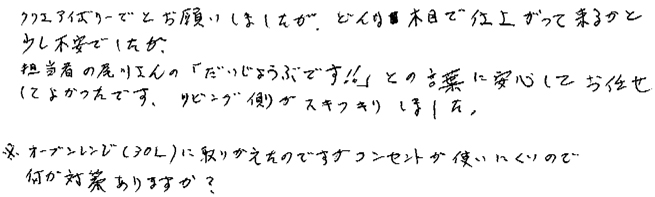 クリエアイボリーでとお願いしましたが、どんな木目で仕上がって来るかと
少し不安でしたが、
担当者の尾川さんの「だいじょうぶです!!」との言葉に安心してお任せ
してよかったです、リビング側がスキッキリしました。
※オーブンレンジ(30L)に取りかえたのですがコンセントが使いにくいので
何か対策ありますか?